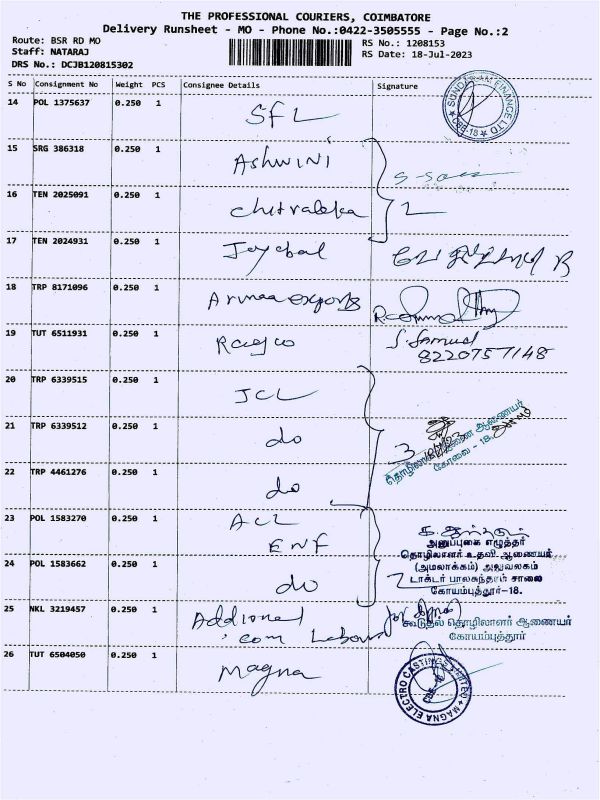 THE PROFESSIONAL COURIERS, COIMBATORE
Delivery Runsheet - MO - Phone No.:0422-3505555 - Page No.:2
Route: BSR RD MO
Staff: NATARAJ
DRS No.: DCJB120815302
RS No.: 1208153
RS Date: 18-Jul-2023
S No Consignment No Weight PCS Consignee Details Signature
14 POL 1375637 0.250 1 SFL
SUNDARAM FINANCE LTD CBE-18
15 SRG 386318 0.250 1 Ashwini
16 TEN 2025091 0.250 1 Chitraleka 2
17 TEN 2024931 0.250 1
18 TRP 8171096 0.250 1 exports
19 TUT 6511931 0.250 1 S. Samuel
8220757148
20 TRP 6339515 0.250 1 JCL
21 TRP 6339512 0.250 1 do 3
ஆணையர்
கோவை - 18.
22 TRP 4461276 0.250 1 do
23 POL 1583270 0.250 1 ACL
ENF
அனுப்புகை எழுத்தர்
தொழிலாளர் உதவி ஆணையர்
(அமலாக்கம்) அலுவலகம்
டாக்டர் பாலசுந்தரம் சாலை
கோயம்புத்தூர்-18.
24 POL 1583662 0.250 1 do 2
25 NKL 3219457 0.250 1 Addional
com Labour
கூடுதல் தொழிலாளர் ஆணையர்
கோயம்புத்தூர்
26 TUT 6504050 0.250 1 Magna
MAGNA ELECTRO CASTINGS LIMITED CBE-18